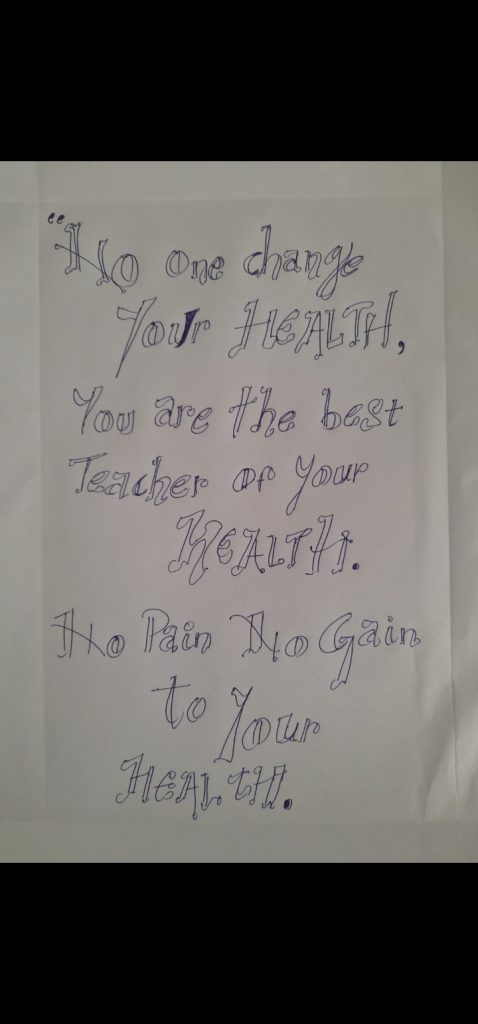 “No one change
Your HEALTH,
You are the best
Teacher of your
HEALTH.
No Pain No Gain
to Your
HEALTH.